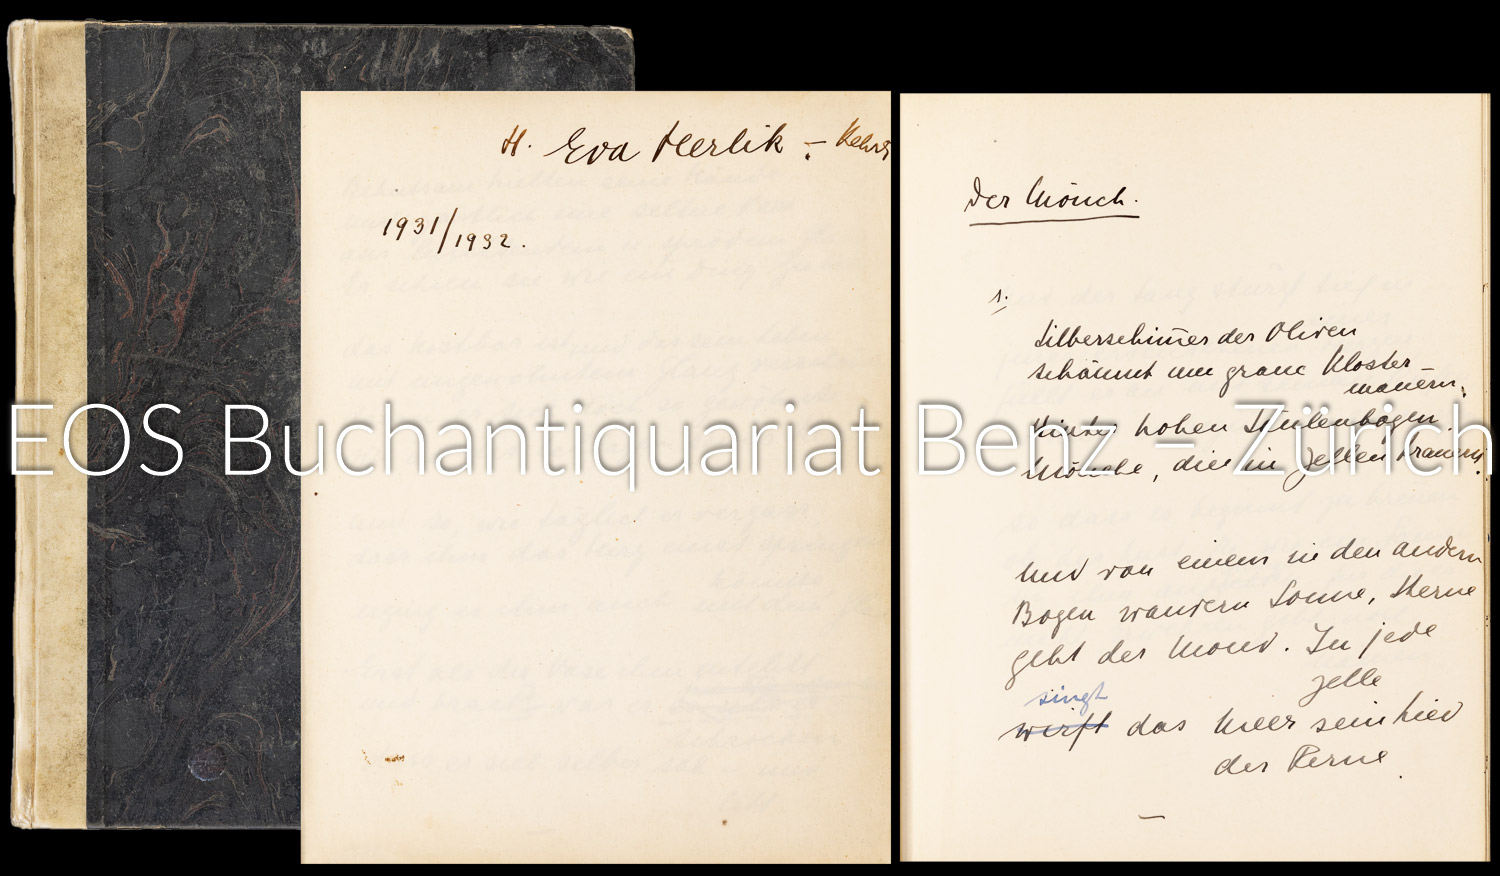 H. Eva Merlik. –
1931/1932.
Der Mönch.
1.
Silberschim̄er der Oliven
schäumt um graue Kloster–
mauern.
Hinter hohen Säulenbogen
Mönche, die in Zellen trauern.
Und von einem in den andern
Bogen wandern Sonne, Sterne
geht der Mond. In jede
Zelle
singt
wirft das Meer sein Lied
der Ferne.
–
EOS Buchantiquariat Benz – Zürich